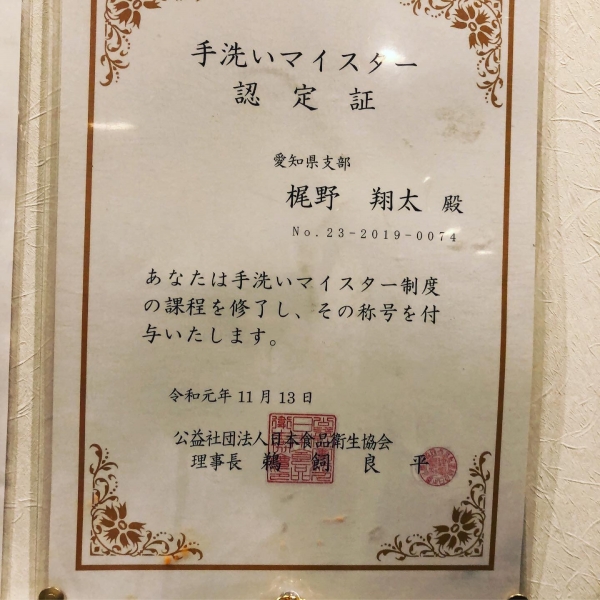 手洗いマイスター
認定証
愛知県支部
梶野 翔太 殿
No.23-2019-0074
あなたは手洗いマイスター制度
の課程を修了し、その称号を付
与いたします。
令和元年11月13日
公益社団法人日本食品衛生協会
理事長 鵜飼良平